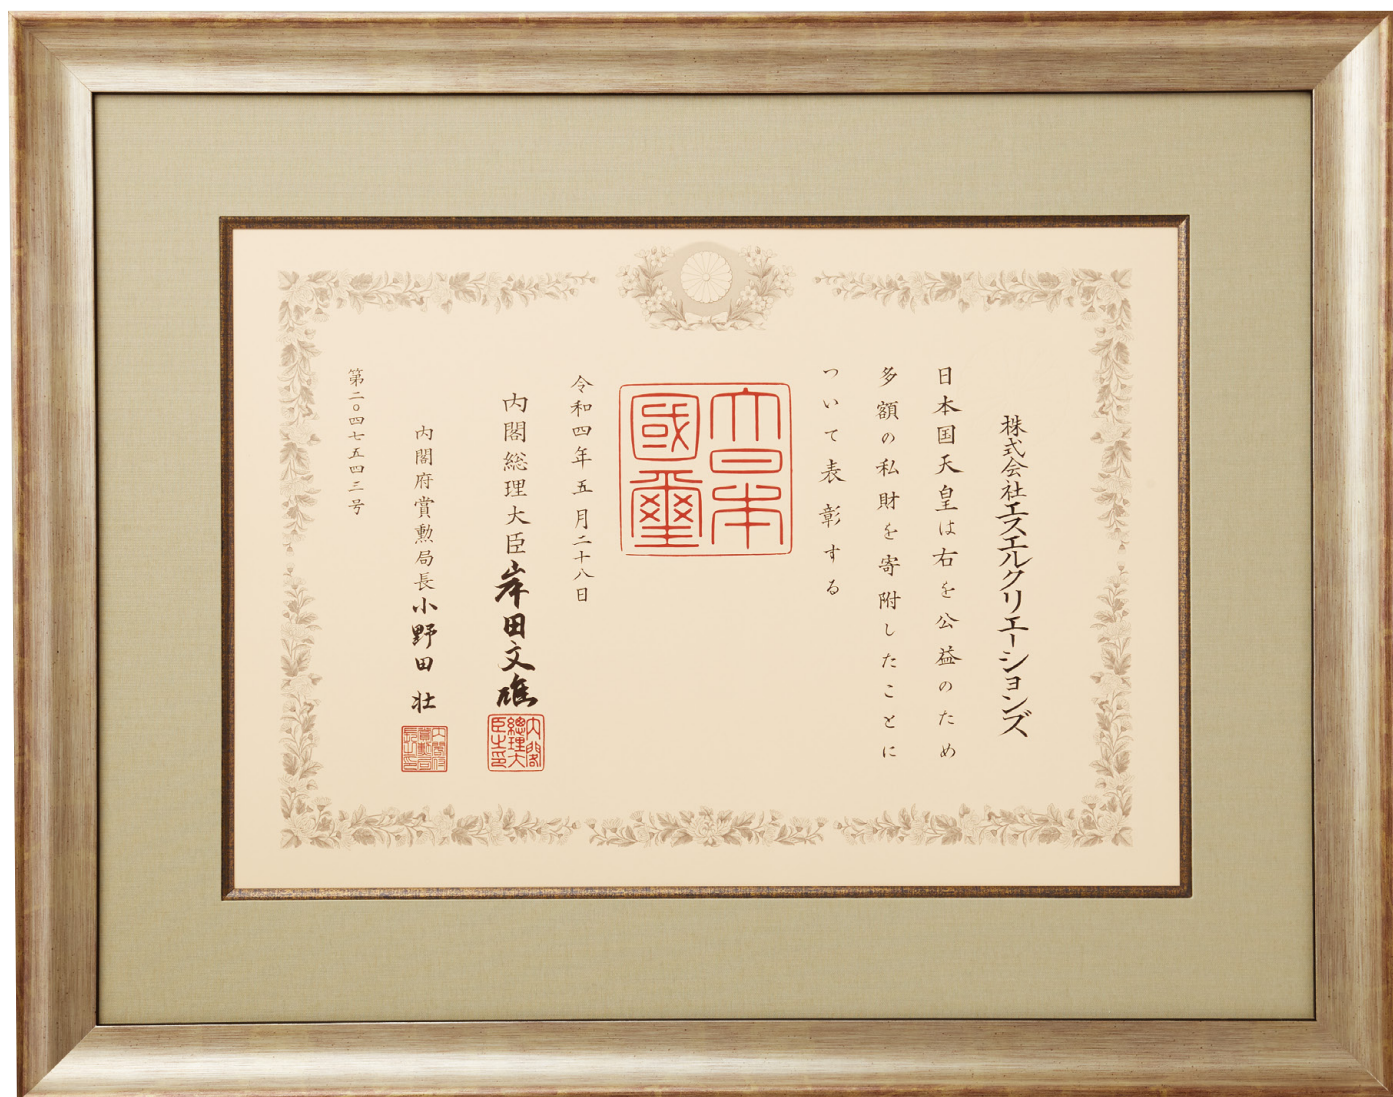 株式会社エスエルクリエーションズ
日本国天皇は右を公益のため
多額の私財を寄附したことに
ついて表彰する
大日本
國璽
令和四年五月二十八日
内閣総理大臣岸田文雄
内閣
總理大
臣之印
内閣府賞勲局長小野田 壮
内閣府
賞勲局
長之印
第二〇四七五四三号